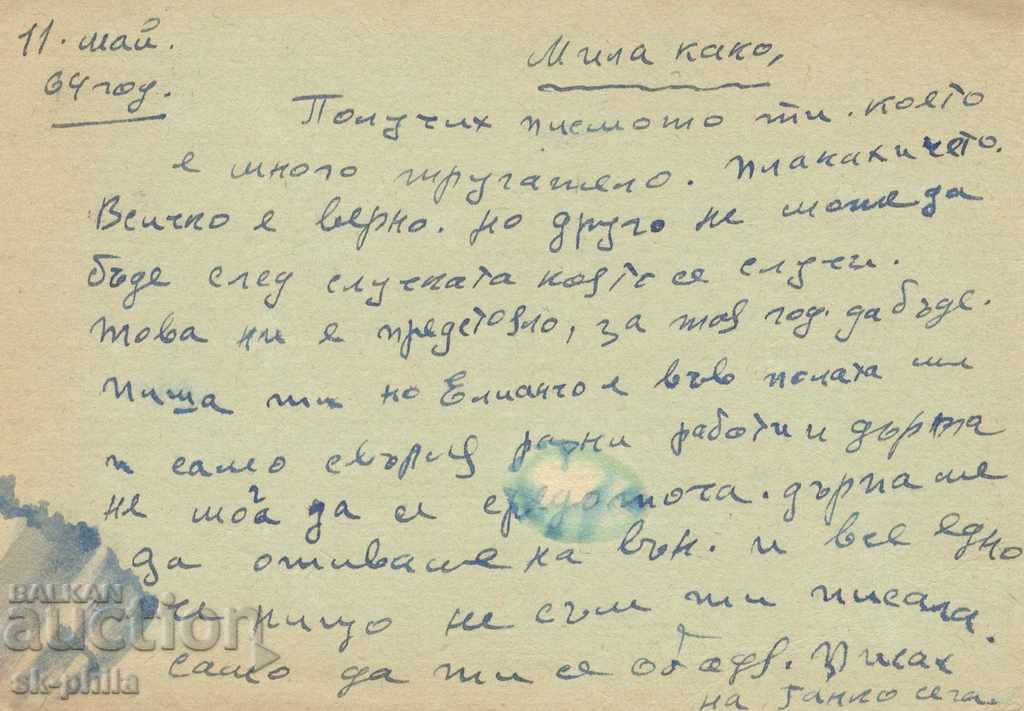 11. май.
64 год.
Мила како,
Получих писмото ти. което
е много тругатело. плакахичето.
Всичко е верно. но друго не може да
бъде след случката която се случи.
това ни е предстояло, за тоя год. да бъде.
пиша ти но Елианчо е във полата ми
и само свърля разни работи и дърпа
не мога да се средоточа. дърпа ме
да отиваме на вън. и все едно
че нищо не съм ти писала.
само да ти се обадя. Писах
на Ганко сега.
BALKAN
auction
sk-philla